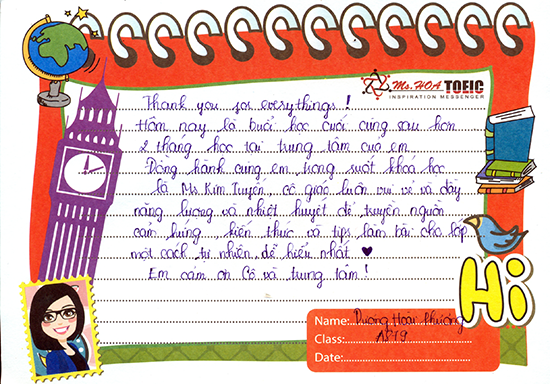 Ms. HOA TOEIC
INSPIRATION MESSENGER
Thank you for everythings !
Hôm nay là buổi học cuối cùng sau hơn
2 tháng học tại trung tâm của em.
Đồng hành cùng em trong suốt khoá học
là Ms. Kim Tuyến, cô giáo luôn vui vẻ và đầy
năng lượng và nhiệt huyết để truyền nguồn
cảm hứng, kiến thức và tips làm bài cho lớp
một cách tự nhiên, dễ hiểu nhất ♥
Em cám ơn Cô và trung tâm !
Hi
Name: Dương Hoài Phương
Class:
Date: